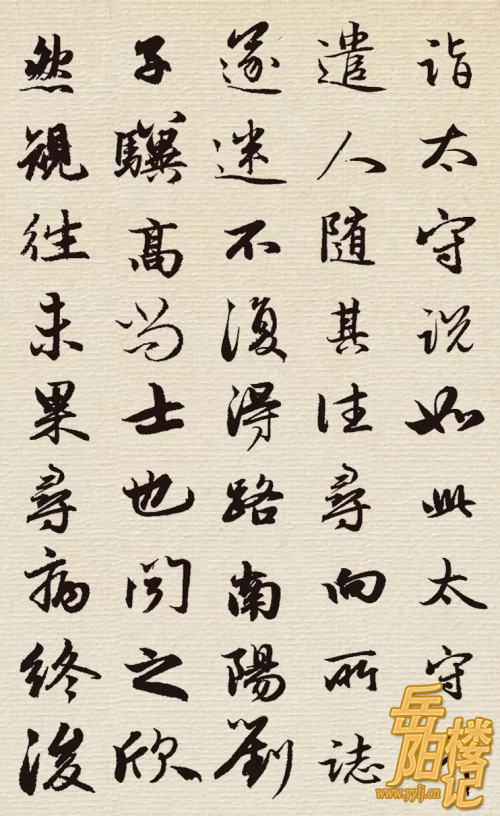 詣太守说如此太守
遣人随其往尋向所誌
遂迷不復得路南陽劉
子驥高尚士也闻之欣
然規往未果尋病終後
岳阳楼记
www.yylj.cn